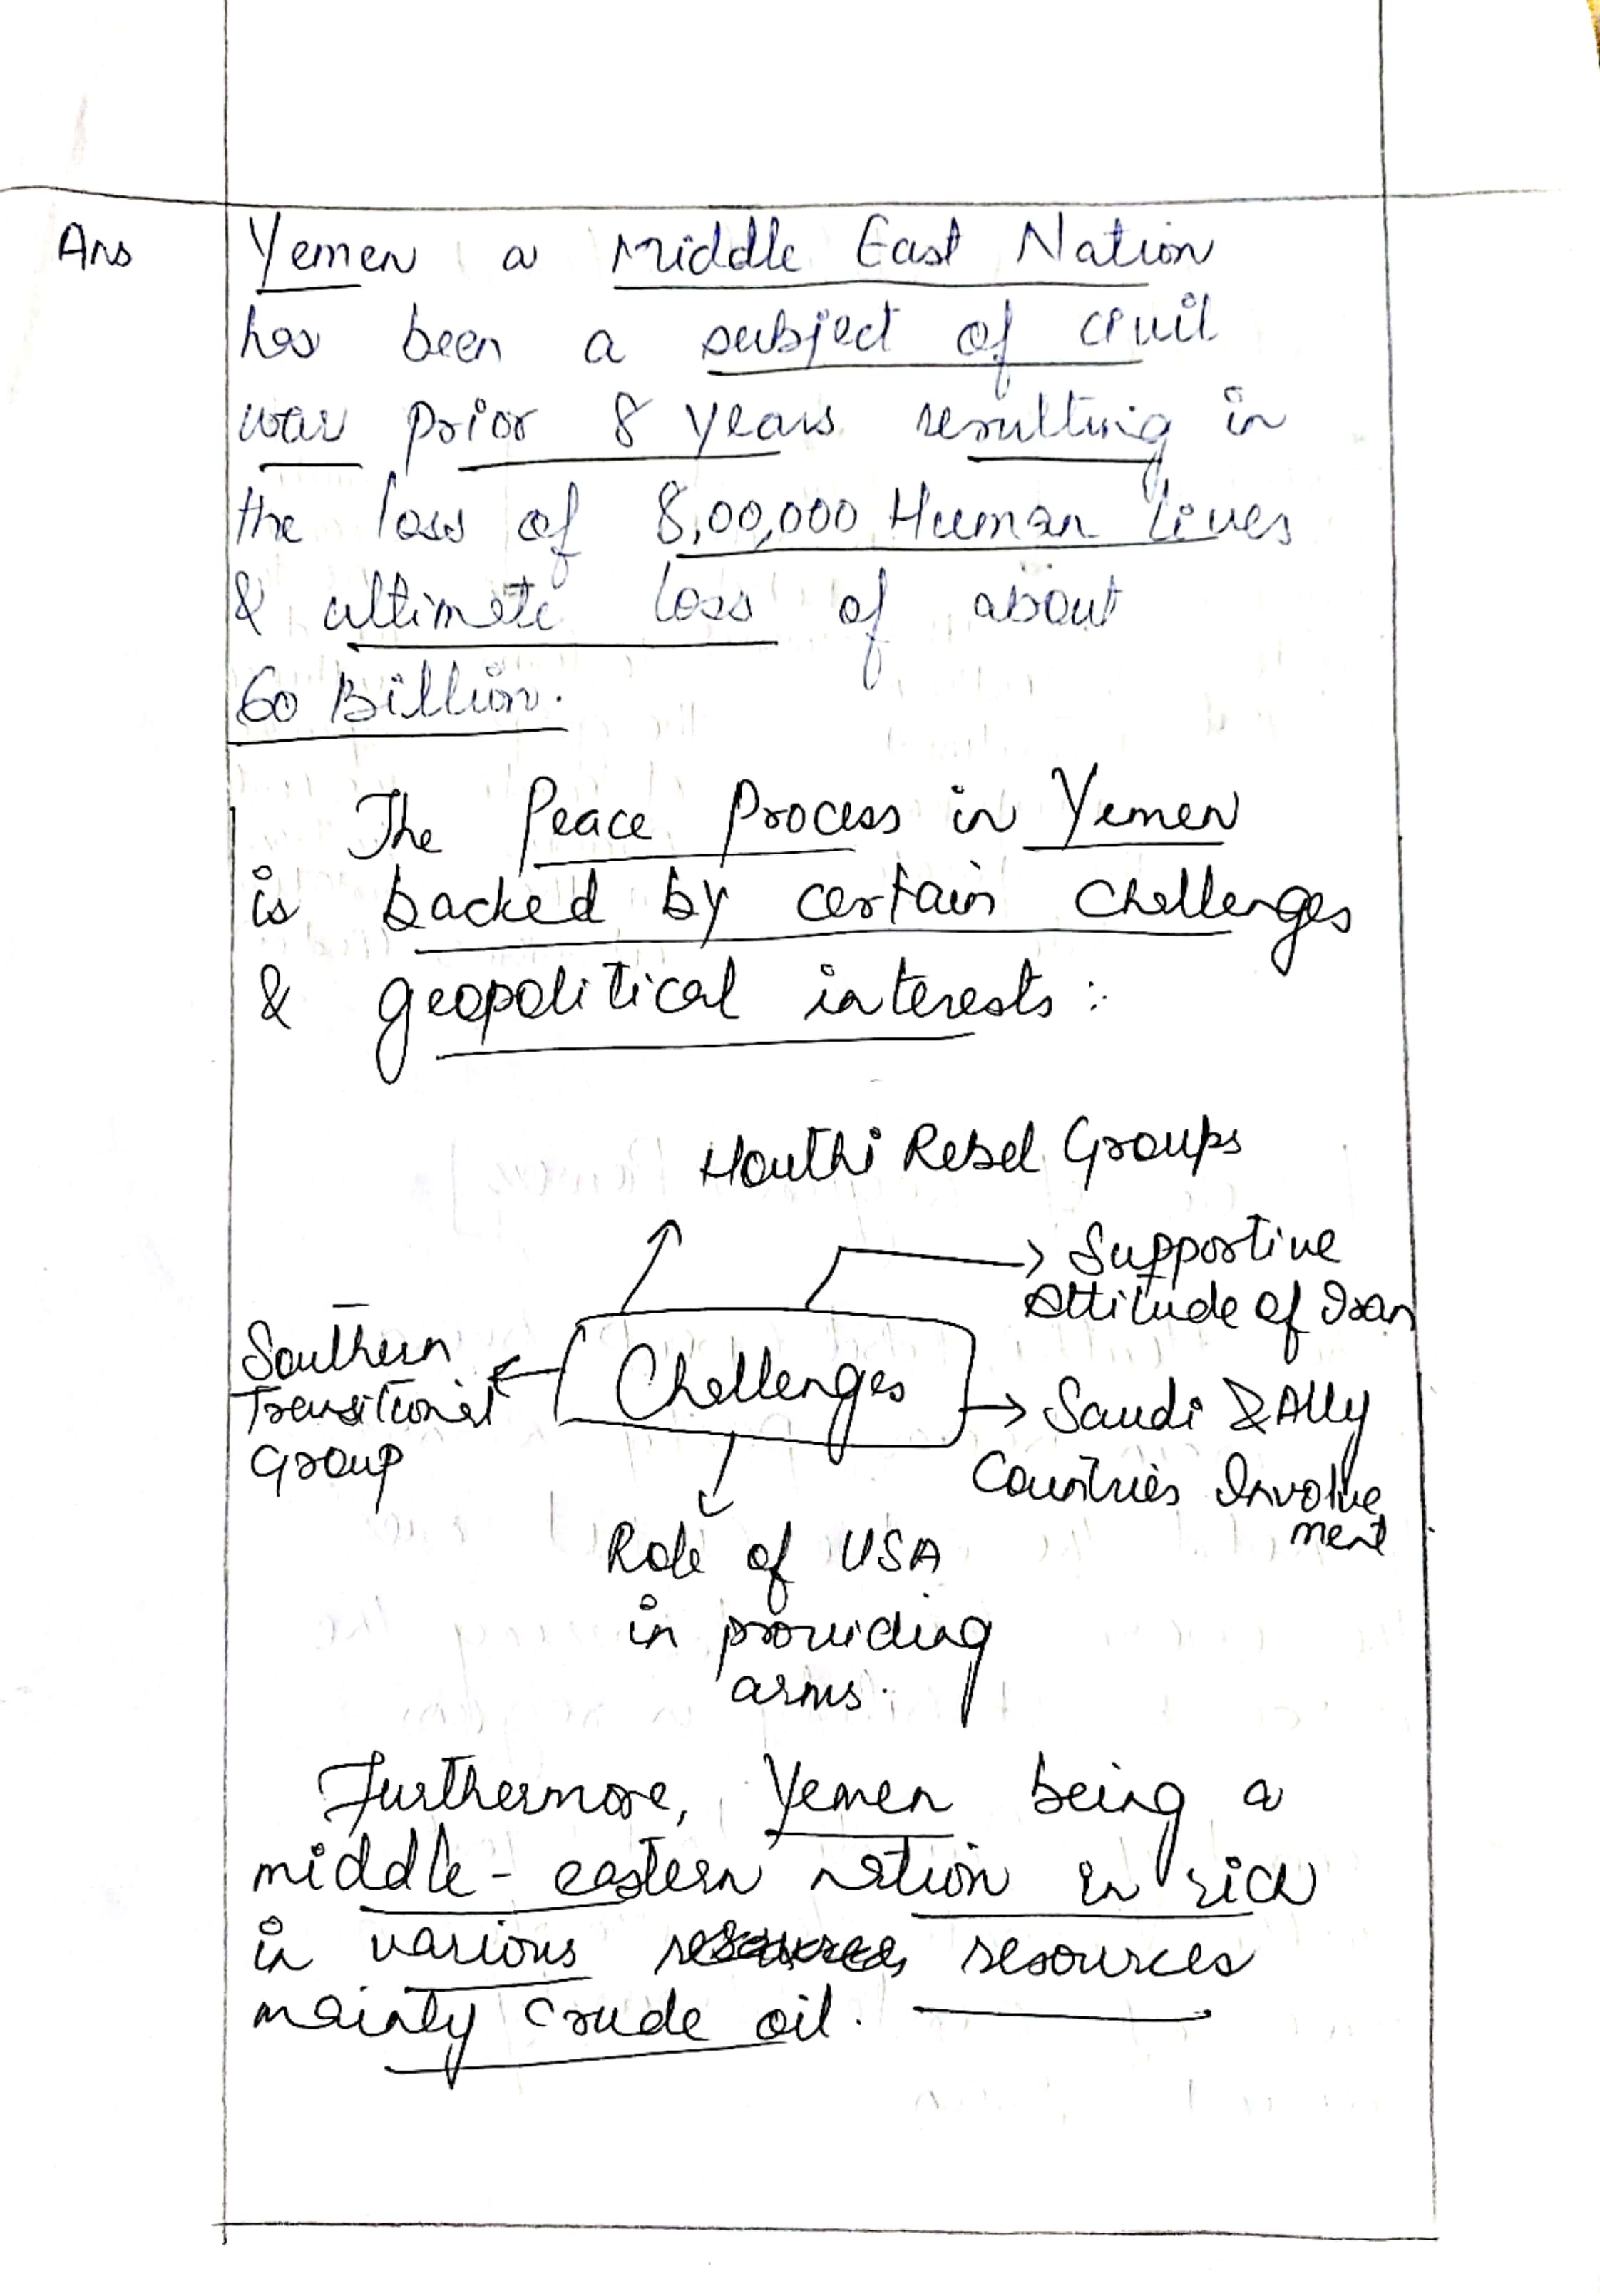 Ans
Yemen a Middle East Nation
has been a subject of civil
war prior 8 years resulting in
the loss of 8,00,000 Human lives
& ultimate loss of about
60 Billion.
The Peace Process in Yemen
is backed by certain challenges
& geopolitical interests :
Houthi Rebel Groups
Supportive
attitude of Iran
Southern
Transitional
Group
Challenges
Saudi & Ally
Countries Involve
ment
Role of USA
in providing
arms.
Furthermore, Yemen being a
middle-eastern nation is rich
in various resources
mainly crude oil.